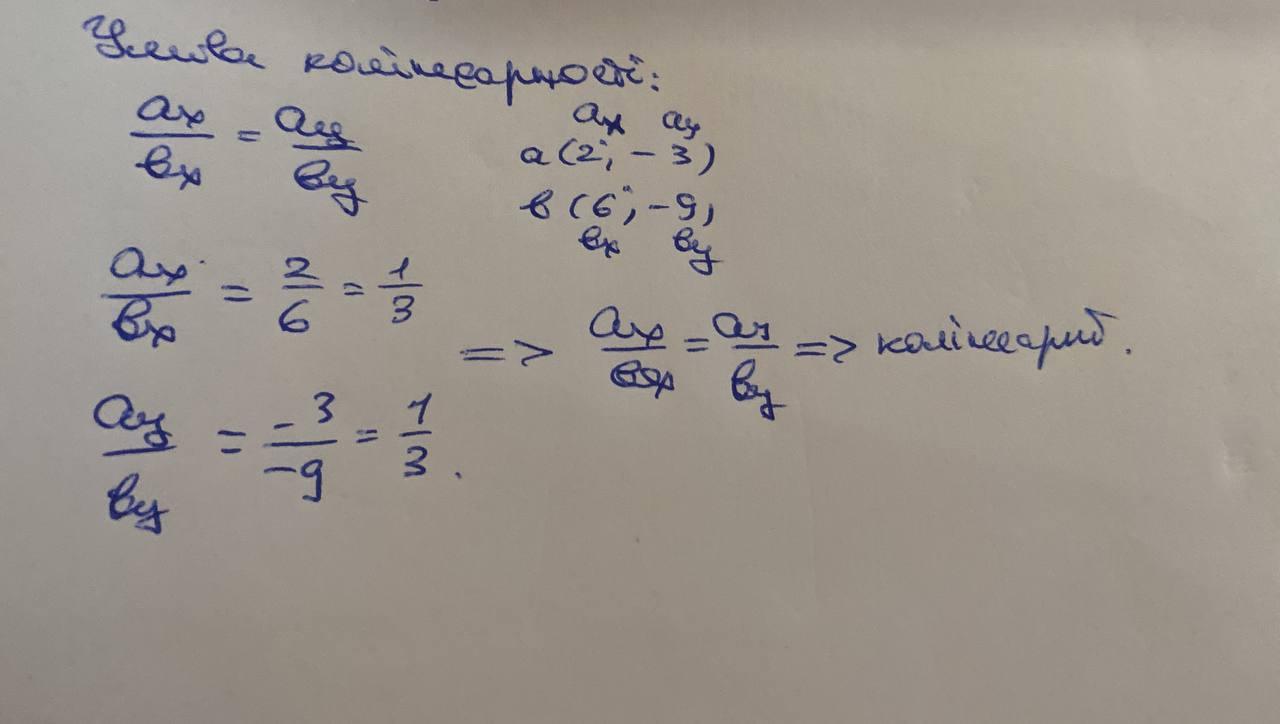 Умова колінеарності:
ax/вx = ay/вy
ax ay
a(2; -3)
в(6; -9)
вx вy
ax/вx = 2/6 = 1/3
=> ax/вx = ay/вy => колінеарні.
ay/вy = -3/-9 = 1/3.